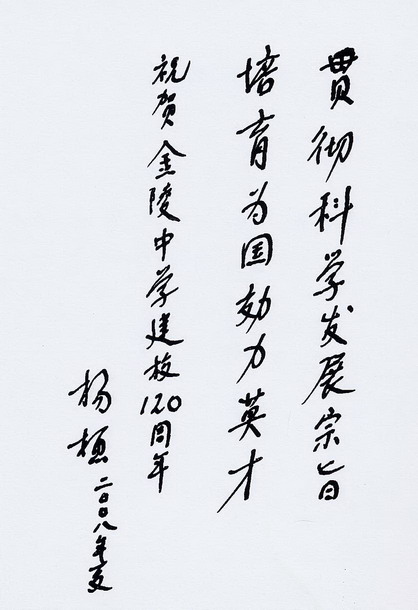 贯彻科学发展宗旨
培育为国効力英才
祝贺金陵中学建校120周年
杨
二〇〇八年夏